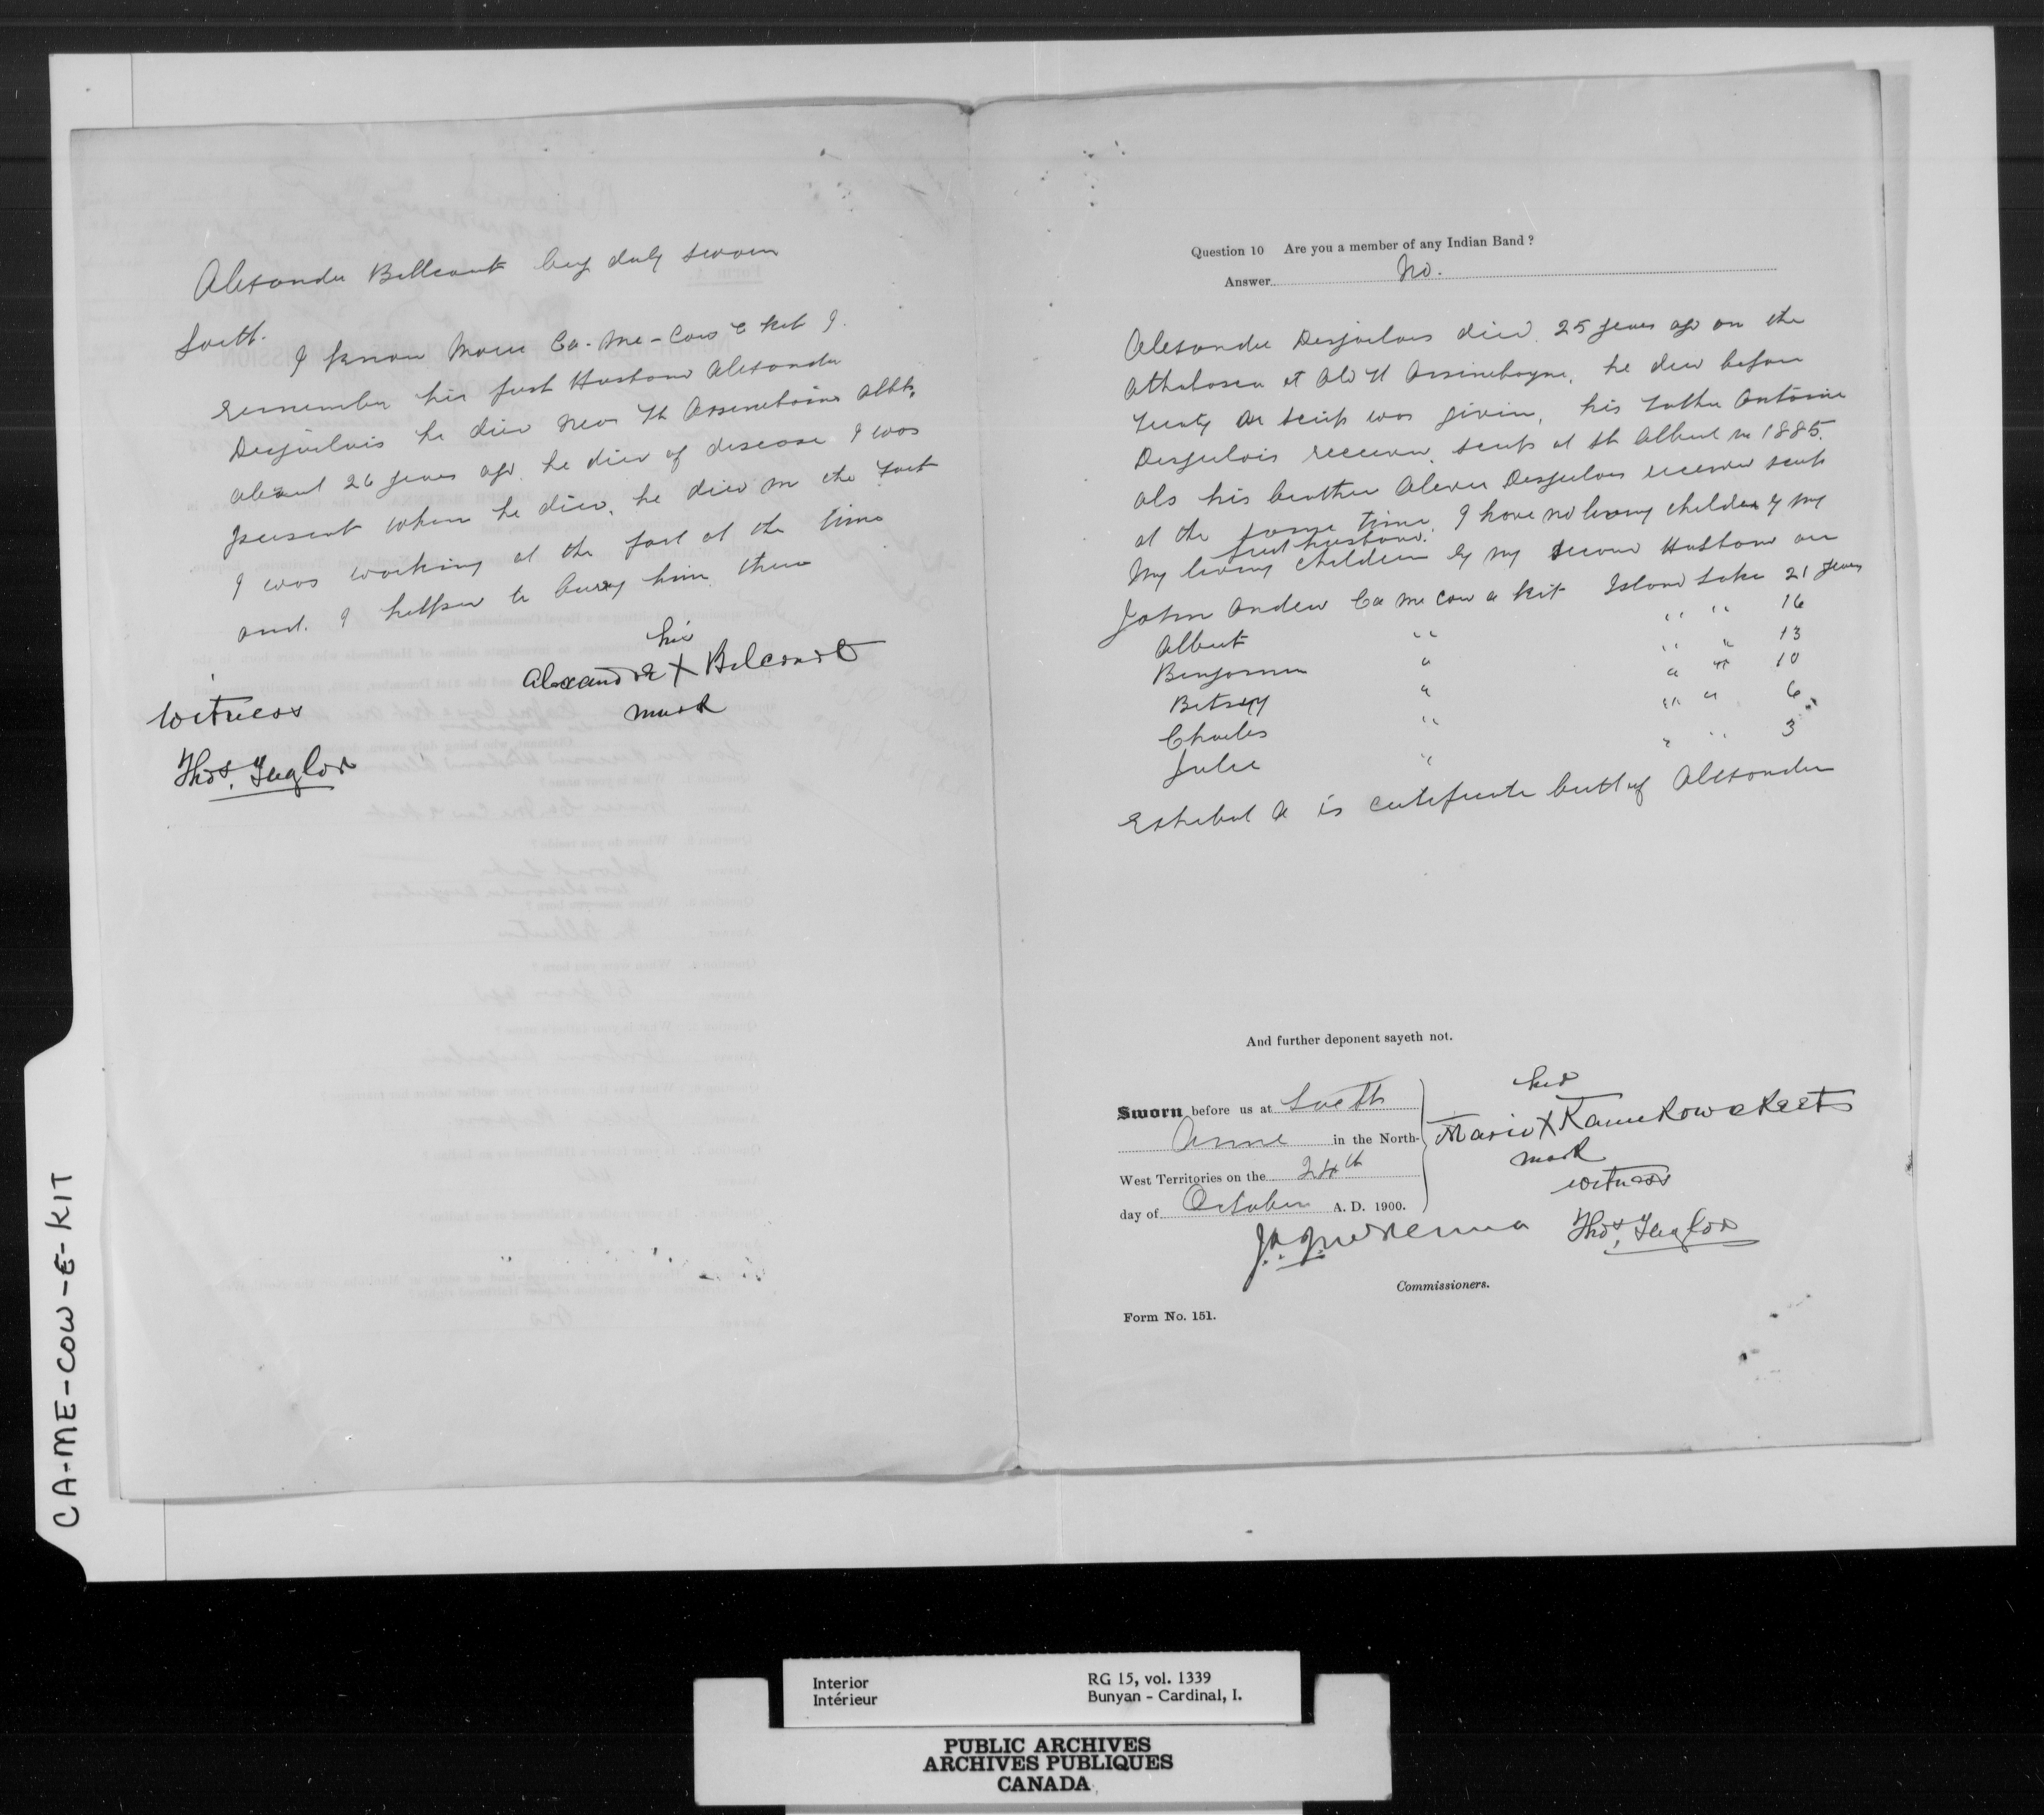 Alexander Bellcourt beg duly sworn
Saith.
I know Marie Ca-Me-Cow e kit I
remember his first Husband Alexander
Desjarlais he died near Ft Assineboine Alta,
about 26 years ago. he died of disease I was
present when he died, he died in the Fort
I was working at the fort at the time
and I helped to bury him there
his
Alexandre X Belcourt
mark
Witness
Thos. Taylor
Question 10 Are you a member of any Indian Band ?
Answer No.
Alexander Desjarlais died 25 years ago on the
Athabasca at Old Ft Assineboyne, he died before
Treaty or scrip was given, his Father Antoine
Desjarlois received scrip at St Albert in 1885.
als his brother Alexis Desjarlois received scrip
at the same time. I have no living children by my
first husband.
My living children by my second Husband are
John Andrew Ca me cow e kit Island Lake 21 years
Albert " " " 16
Benjamin " " " 13
Betsey " " " 10
Charles " " " 6
Julie " " " 3
Exhibit A is certificate burl of Alexander
And further deponent sayeth not.
Sworn before us at Lac St
Anne in the North-
West Territories on the 24th
day of October A. D. 1900.
her
Marie X Kamekowekeet
mark
witness
Thos. Taylor
J. A. J. McKenna
Commissioners.
Form No. 151.
CA-ME-COW-E-KIT
Interior
Intérieur
RG 15, vol. 1339
Bunyan - Cardinal, I.
PUBLIC ARCHIVES
ARCHIVES PUBLIQUES
CANADA